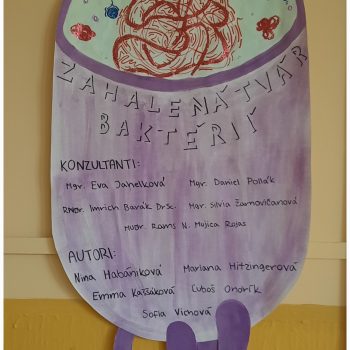 ZAHALENÁ TVÁR
BAKTÉRIÍ
KONZULTANTI:
Mgr. Eva Janelková Mgr. Daniel Pollák
RNDr. Imrich Barák DrSc. Mgr. Silvia Žarnovičanová
MUDr. Rams N. Mojica Rojas
AUTORI:
Nina Habániková Mariana Hitzingerová
Emma Katšáková Ľuboš Ondrík
Sofia Vichová